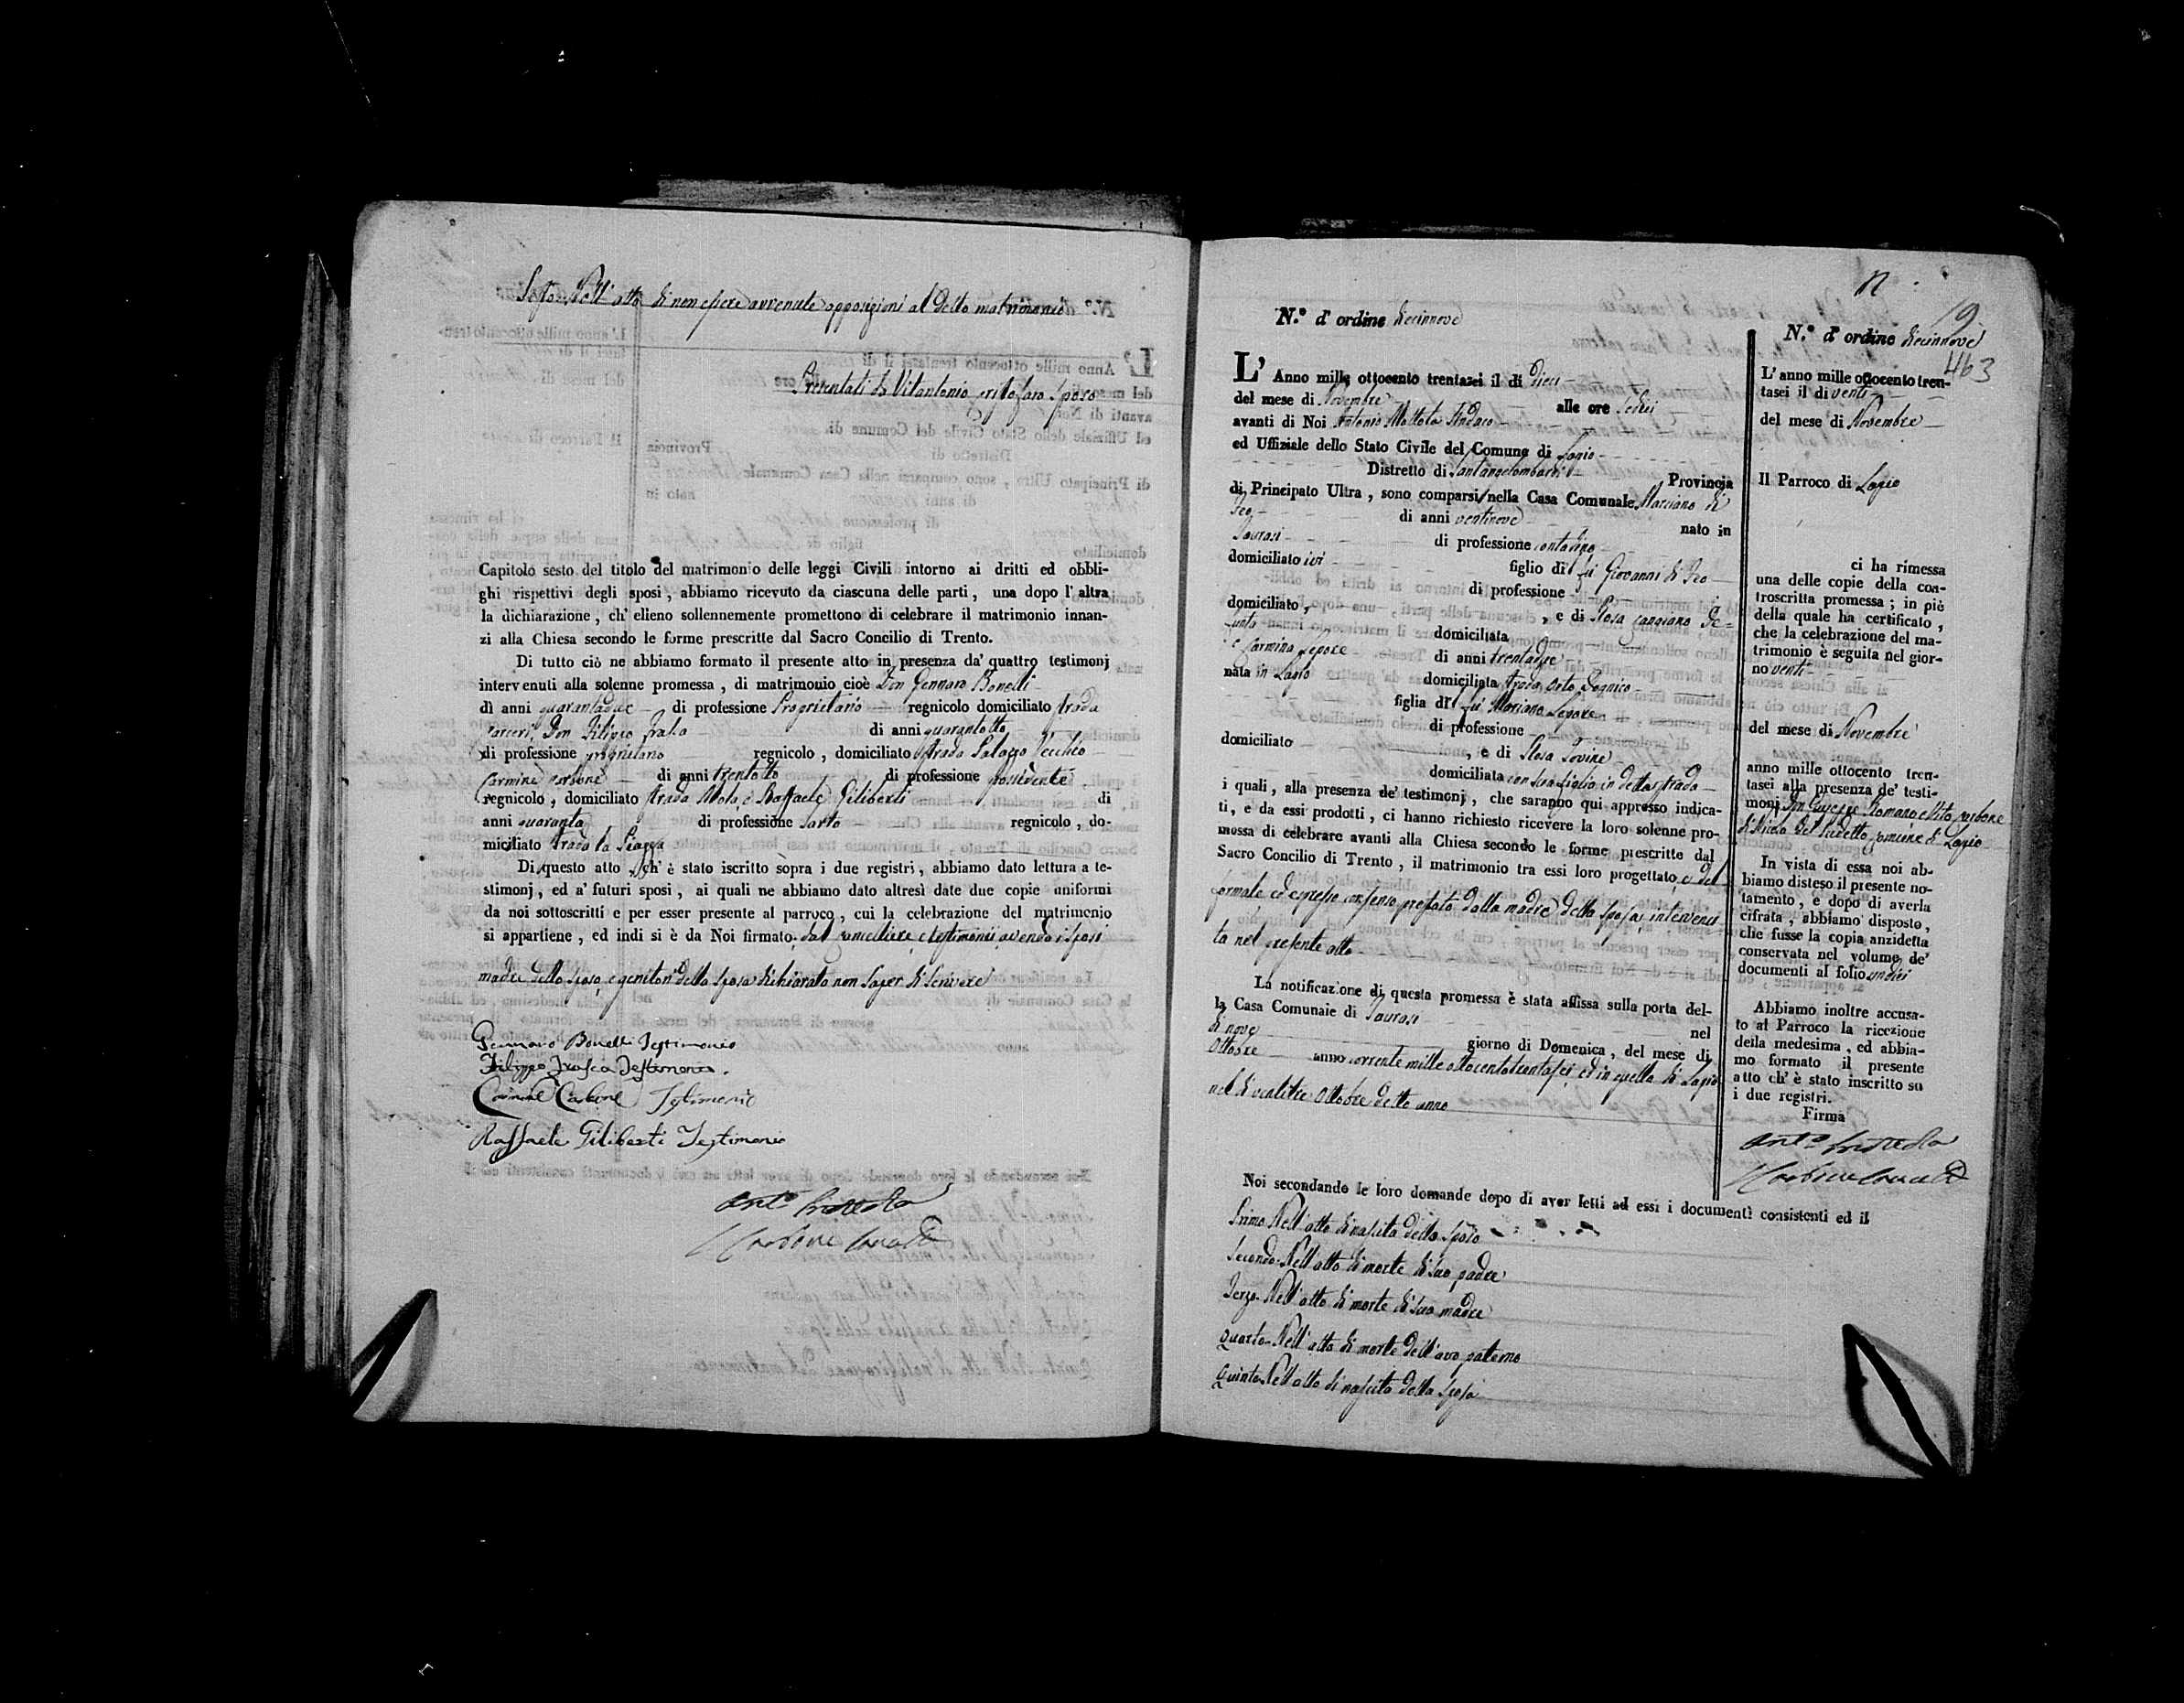 Sesto Nell'atto di non essere avvenute opposizioni al detto matrimonio
Presentati da Vitantonio Cristofaro sposo
Capitolo sesto del titolo del matrimonio delle leggi Civili intorno ai dritti ed obbli-
ghi rispettivi degli sposi, abbiamo ricevuto da ciascuna delle parti, una dopo l'altra
la dichiarazione, ch'elleno sollennemente promettono di celebrare il matrimonio innan-
zi alla Chiesa secondo le forme prescritte dal Sacro Concilio di Trento.
Di tutto ciò ne abbiamo formato il presente atto in presenza da' quattro testimonj
intervenuti alla solenne promessa, di matrimonio cioè Don Gennaro Bonelli
di anni quarantadue di professione Proprietario regnicolo domiciliato strada
Carceri, Don Filippo Frasca di anni quarantotto
di professione proprietario regnicolo, domiciliato strada Palazzo Vecchio
Carmine Carbone di anni trentotto di professione possidente
regnicolo, domiciliato strada Mola, e Raffaele Giliberti di
anni quaranta di professione sarto regnicolo, do-
miciliato strada la Piazza
Di questo atto, ch'è stato iscritto sopra i due registri, abbiamo dato lettura a te-
stimonj, ed a' futuri sposi, ai quali ne abbiamo dato altresì date due copie uniformi
da noi sottoscritti e per esser presente al parroco, cui la celebrazione del matrimonio
si appartiene, ed indi si è da Noi firmato. dal cancelliere, e testimonii avendo i sposi
madre dello sposo, e genitori della sposa dichiarato non saper di scrivere
Gennaro Bonelli Testimonio
Filippo Frasca Testimonio.
Carmine Carbone Testimonio
Raffaele Giliberti Testimonio
Ant.o Mottola
Carbone
N.° d'ordine diecinnove
L'Anno mille ottocento trentasei il di dieci
del mese di Novembre alle ore sedici
avanti di Noi Antonio Mottola Sindaco
ed Uffiziale dello Stato Civile del Comune di Lapio
Distretto di Santangelombardi Provincia
di Principato Ultra, sono comparsi nella Casa Comunale Marciano di
Feo di anni ventinove nato in
Taurasi di professione contadino
domiciliato ivi figlio di fu Giovanni di Feo
di professione
domiciliato, e di Rosa Cangiano De=
funta domiciliata
e Carmina Lepore di anni trentadue
nata in Lapio domiciliata strada Orto
figlia di fu Mariano Lepore
di professione
domiciliato, e di Rosa Iovine
domiciliata con sua figlia in detta strada
i quali, alla presenza de' testimonj, che saranno qui appresso indica-
ti, e da essi prodotti, ci hanno richiesto ricevere la loro solenne pro-
messa di celebrare avanti alla Chiesa secondo le forme prescritte dal
Sacro Concilio di Trento, il matrimonio tra essi loro progettato, e del
formale ed espresso consenso prestato dalla madre della sposa intervenu
ta nel presente atto
La notificazione di questa promessa è stata affissa sulla porta del-
la Casa Comunale di Taurasi nel
di nove giorno di Domenica, del mese di
Ottobre anno corrente mille ottocentotrentasei, ed in quella di Lapio
nel di ventitre Ottobre detto anno
Noi secondando le loro domande dopo di aver letti ad essi i documenti consistenti ed il
Primo Nell'atto di nascita dello sposo
Secondo Nell'atto di morte di suo padre
Terzo Nell'atto di morte di sua madre
Quarto Nell'atto di morte dell'avo paterno
Quinto Nell'atto di nascita della sposa
19
N.° d'ordine diecinnove
463
L'anno mille ottocento tren-
tasei il di venti
del mese di Novembre
Il Parroco di Lapio
ci ha rimessa
una delle copie della con-
troscritta promessa; in piè
della quale ha certificato,
che la celebrazione del ma-
trimonio è seguita nel gior-
no venti
del mese di Novembre
anno mille ottocento tren-
tasei alla presenza de' testi-
monj Don Giuseppe Romano e Vito Carbone
di Nicola del sudetto comune di Lapio
In vista di essa noi ab-
biamo disteso il presente no-
tamento, e dopo di averla
cifrata, abbiamo disposto,
che fusse la copia anzidetta
conservata nel volume de'
documenti al folio undici
Abbiamo inoltre accusa-
to al Parroco la ricezione
della medesima, ed abbia-
mo formato il presente
atto ch'è stato inscritto su
i due registri.
Firma
Ant.o Mottola
Carbone